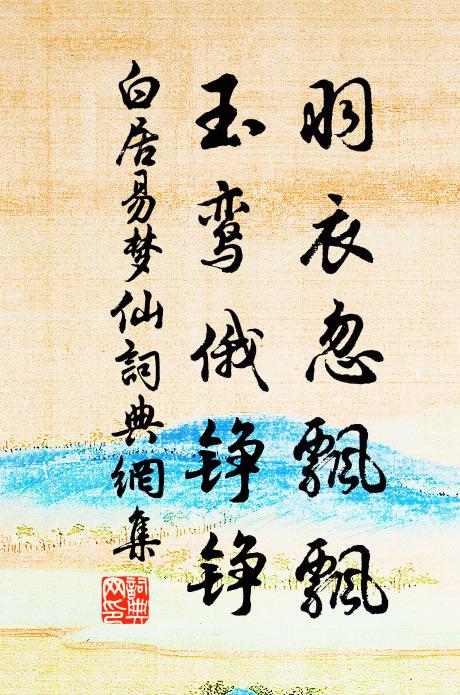 羽衣忽飘飘
玉鸾俄铮铮
白居易梦仙詞典網集
詞典網印